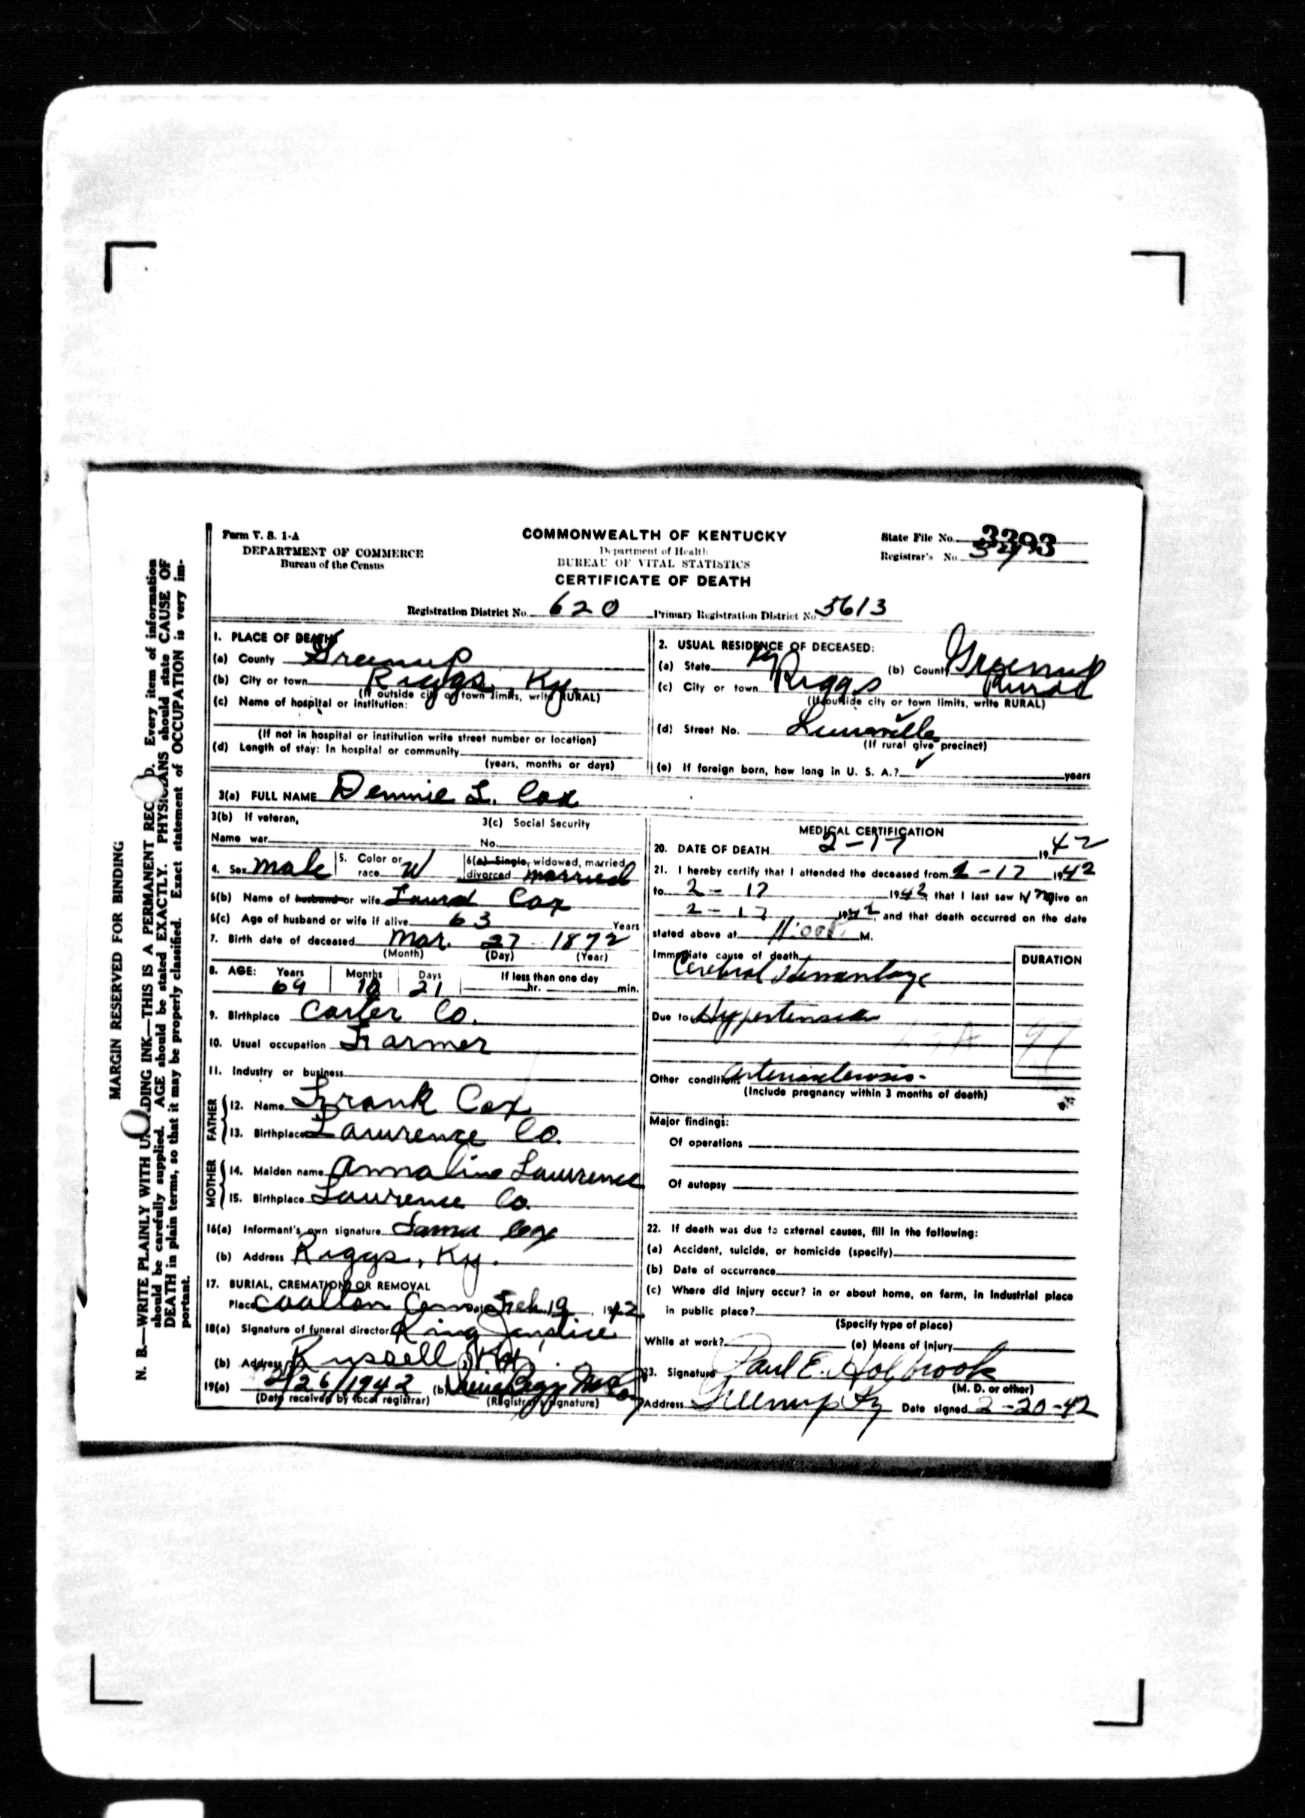 Form V. S. 1-A
DEPARTMENT OF COMMERCE
Bureau of the Census
COMMONWEALTH OF KENTUCKY
Department of Health
BUREAU OF VITAL STATISTICS
CERTIFICATE OF DEATH
State File No. 3293
Registrar's No.
Registration District No. 620 Primary Registration District No. 5613
MARGIN RESERVED FOR BINDING
N. B.—WRITE PLAINLY WITH UNFADING INK—THIS IS A PERMANENT RECORD. Every item of information
should be carefully supplied. AGE should be stated EXACTLY. PHYSICIANS should state CAUSE OF
DEATH in plain terms, so that it may be properly classified. Exact statement of OCCUPATION is very im-
portant.
1. PLACE OF DEATH
(a) County Greenup
(b) City or town Riggs Ky.
(If outside city or town limits, write RURAL)
(c) Name of hospital or institution:
(If not in hospital or institution write street number or location)
(d) Length of stay: In hospital or community
(years, months or days)
2. USUAL RESIDENCE OF DECEASED:
(a) State Ky (b) County Greenup
(c) City or town Riggs Rural
(If outside city or town limits, write RURAL)
(d) Street No.
(If rural give precinct)
(e) If foreign born, how long in U. S. A.? years
3(a) FULL NAME Dennie L. Cox
3(b) If veteran,
Name war
3(c) Social Security
No.
4. Sex male 5. Color or race W 6(a) Single, widowed, married, divorced married
6(b) Name of husband or wife Laura Cox
6(c) Age of husband or wife if alive 63 Years
7. Birth date of deceased Mar. 27 1872
(Month) (Day) (Year)
8. AGE: Years Months Days If less than one day
69 10 21 hr. min.
9. Birthplace Carter Co.
10. Usual occupation Farmer
11. Industry or business
FATHER
12. Name Frank Cox
13. Birthplace Lawrence Co.
MOTHER
14. Maiden name Annaline Lawrence
15. Birthplace Lawrence Co.
16(a) Informant's own signature Cox
(b) Address Riggs, Ky.
17. BURIAL, CREMATION OR REMOVAL
Place Coalton Cem Feb 19 1942
18(a) Signature of funeral director King Justice
(b) Address Russell, Ky.
19(a) 2/26/1942 (b)
(Date received by local registrar) (Registrar's signature)
MEDICAL CERTIFICATION
20. DATE OF DEATH 2-17 1942
21. I hereby certify that I attended the deceased from 2-17 1942
to 2-17 1942, that I last saw him alive on
2-17 1942 and that death occurred on the date
stated above at 11:00 P M.
Immediate cause of death Cerebral Hemorrhage
DURATION
Due to Hypertension
Other conditions Arteriosclerosis
(Include pregnancy within 3 months of death)
Major findings:
Of operations
Of autopsy
22. If death was due to external causes, fill in the following:
(a) Accident, suicide, or homicide (specify)
(b) Date of occurrence
(c) Where did injury occur? in or about home, on farm, in industrial place
in public place?
(Specify type of place)
While at work? (e) Means of injury
23. Signature Paul E. Holbrook
(M. D. or other)
Address Greenup Ky Date signed 2-20-42